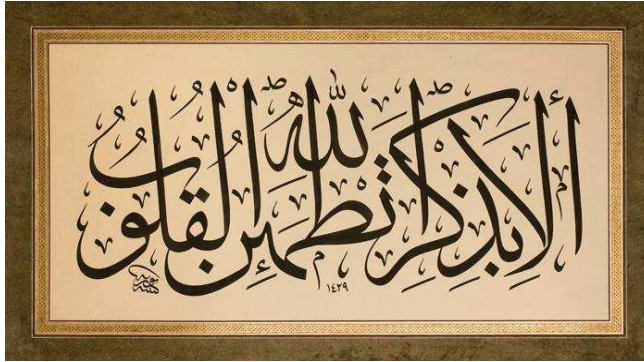 أَلَا بِذِكْرِ اللّٰهِ تَطْمَئِنُّ الْقُلُوبُ
١٤٢٩